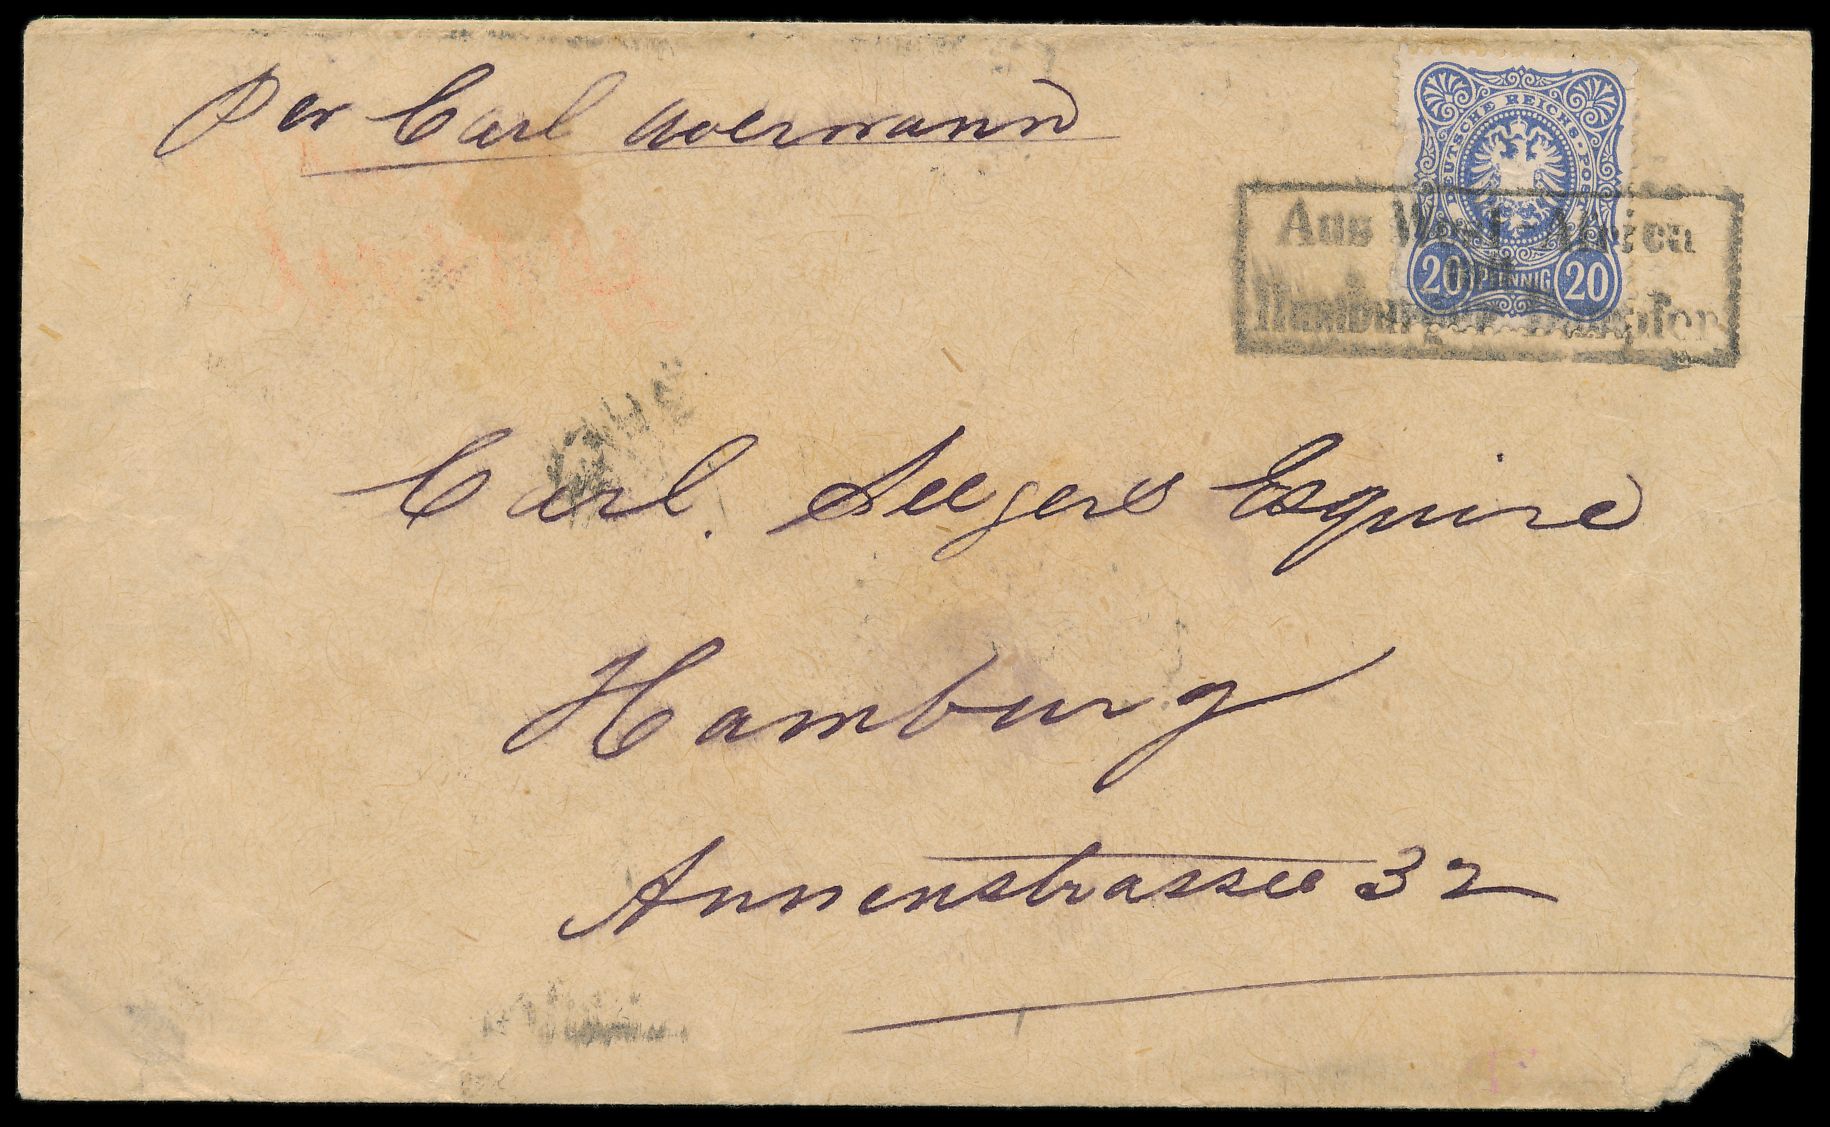 Per Carl Woermann
DEUTSCHE REICHS-POST
Aus West-Africa
mit
20 PFENNIG 20
Hamburger Dampfer
Carl. Seegers Esquire
Hamburg
Annenstrasse 32